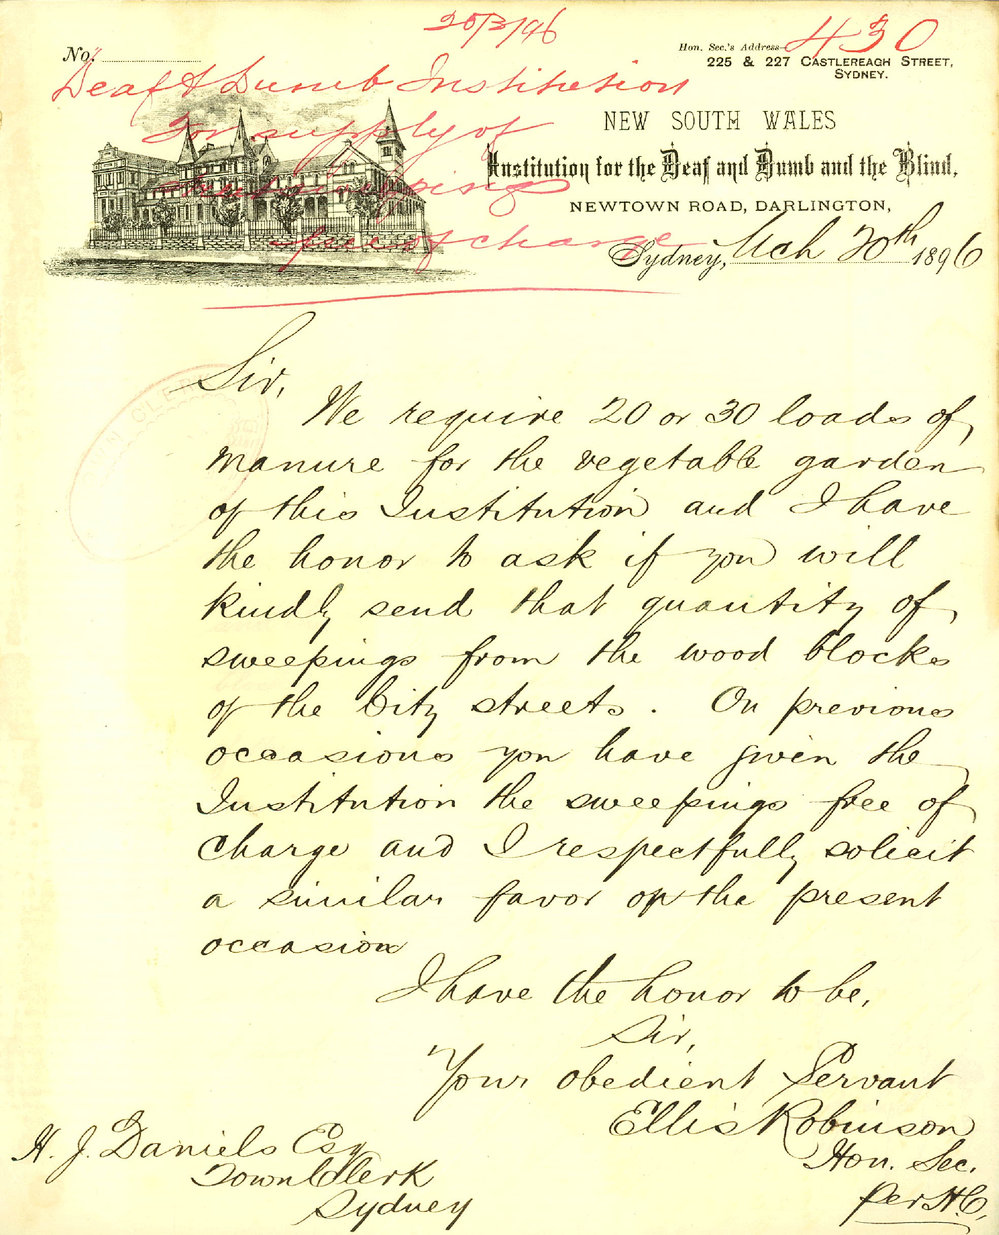 20/3/96
No.
Hon. Sec.'s Address— 430
225 & 227 CASTLEREAGH STREET,
SYDNEY.
Deaf & Dumb Institution
for supply of
sweepings
free of charge
NEW SOUTH WALES
Institution for the Deaf and Dumb and the Blind,
NEWTOWN ROAD, DARLINGTON,
Sydney, Mch 20th 1896
Sir,
We require 20 or 30 loads of
manure for the vegetable garden
of this Institution and I have
the honor to ask if you will
kindly send that quantity of
sweepings from the wood blocks
of the City streets. On previous
occasions you have given the
Institution the sweepings free of
charge and I respectfully solicit
a similar favor on the present
occasion
I have the honor to be,
Sir,
Your obedient Servant
Ellis Robinson
Hon. Sec.
per H.C.
H. J. Daniels Esq
Town Clerk
Sydney